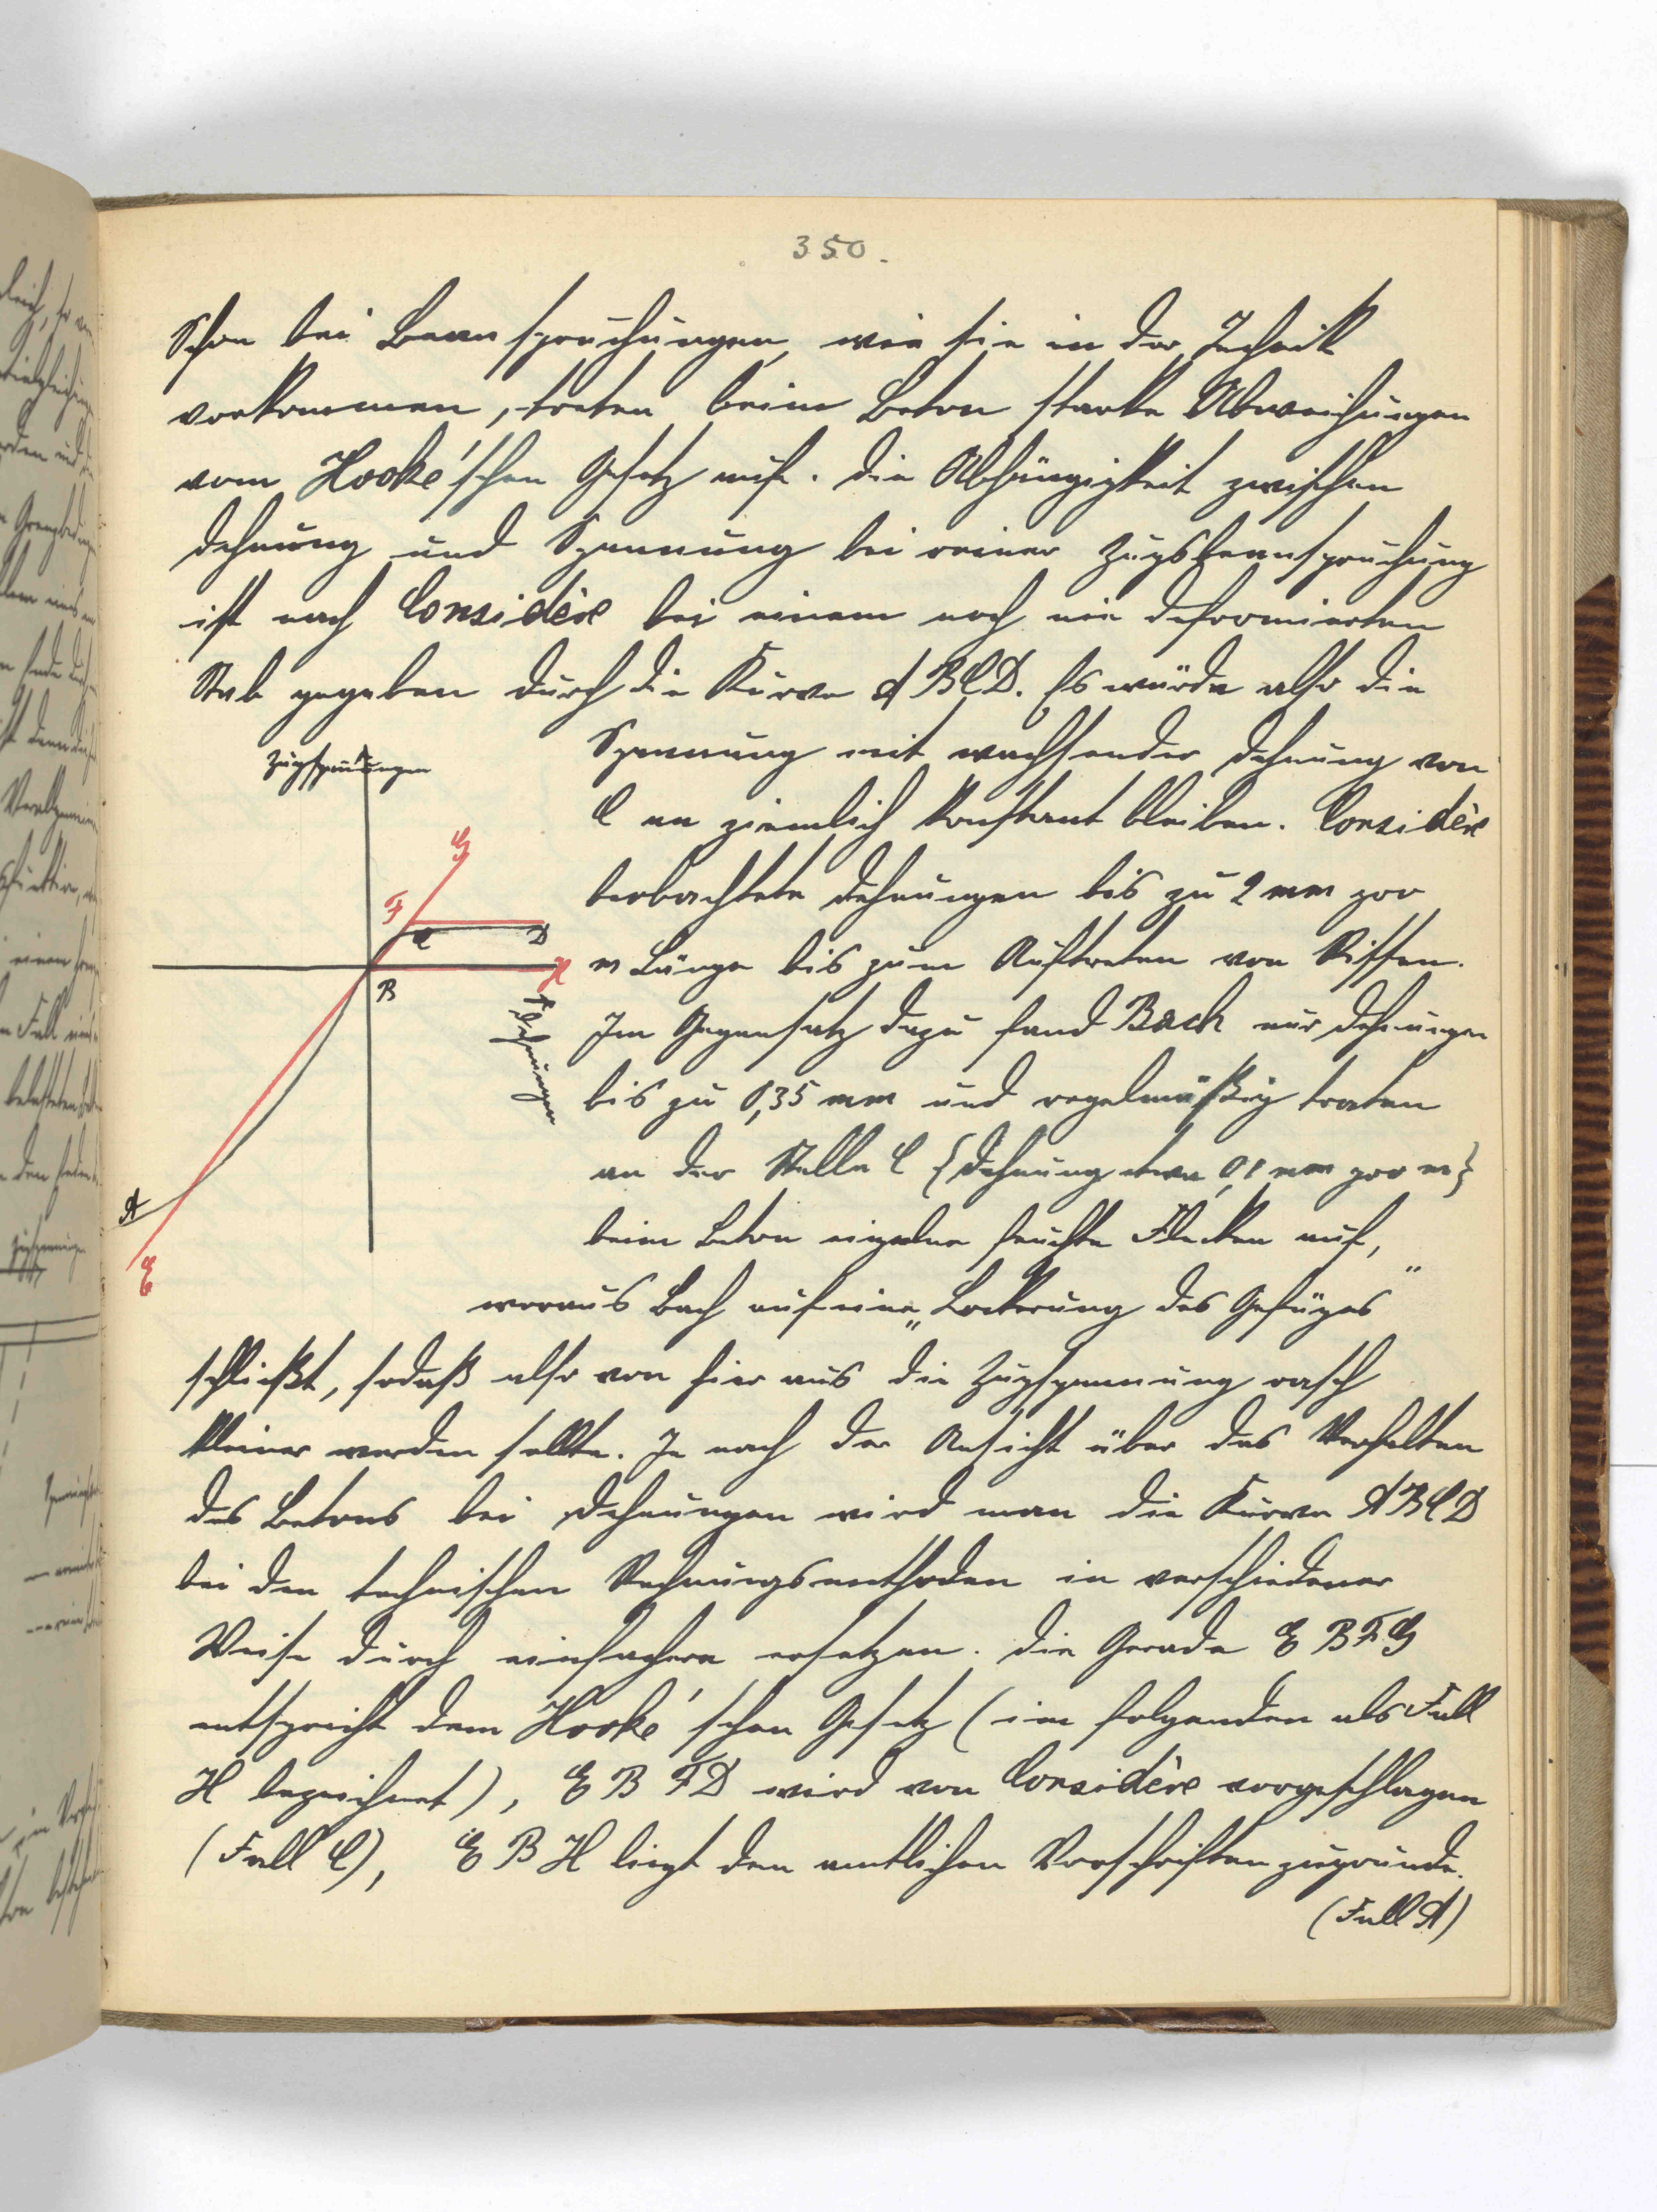 350.
Schon bei Beanspruchungen, wie sie in der Technik
vorkommen, treten beim Beton starke Abweichungen
vom Hooke'schen Gesetz auf. Die Abhängigkeit zwischen
Dehnung und Spannung bei reiner Zugsbeanspruchung
ist nach Considère bei einem noch nie deformierten
Stab gegeben durch die Kurve ABCD. Es würde also die
Spannung mit wachsender Dehnung von
C an ziemlich konstant bleiben. Considère
beobachtete Dehnungen bis zu 2 mm pro
m Länge bis zum Auftreten von Rissen.
Im Gegensatz dazu fand Bach nur Dehnungen
bis zu 0,35 mm und regelmäßig traten
an der Stelle C {Dehnung etwa 0,1 mm pro m}
beim Beton einzelne feuchte Flecken auf,
woraus Bach auf eine „Lockerung des Gefüges"
schließt, sodaß also von hier aus die Zugspannung rasch
kleiner werden sollte. Je nach der Ansicht über das Verhalten
des Betons bei Dehnungen wird man die Kurve ABCD
bei den technischen Rechnungsmethoden in verschiedener
Weise durch einfachere ersetzen. Die Gerade E B F G
entspricht dem Hooke'schen Gesetz (im folgenden als Fall
H bezeichnet), E B F D wird von Considère vorgeschlagen
(Fall C), E B H liegt den amtlichen Vorschriften zugrunde.
(Fall A)
Zugspannungen
G
F
C
D
H
B
Dehnungen
A
E